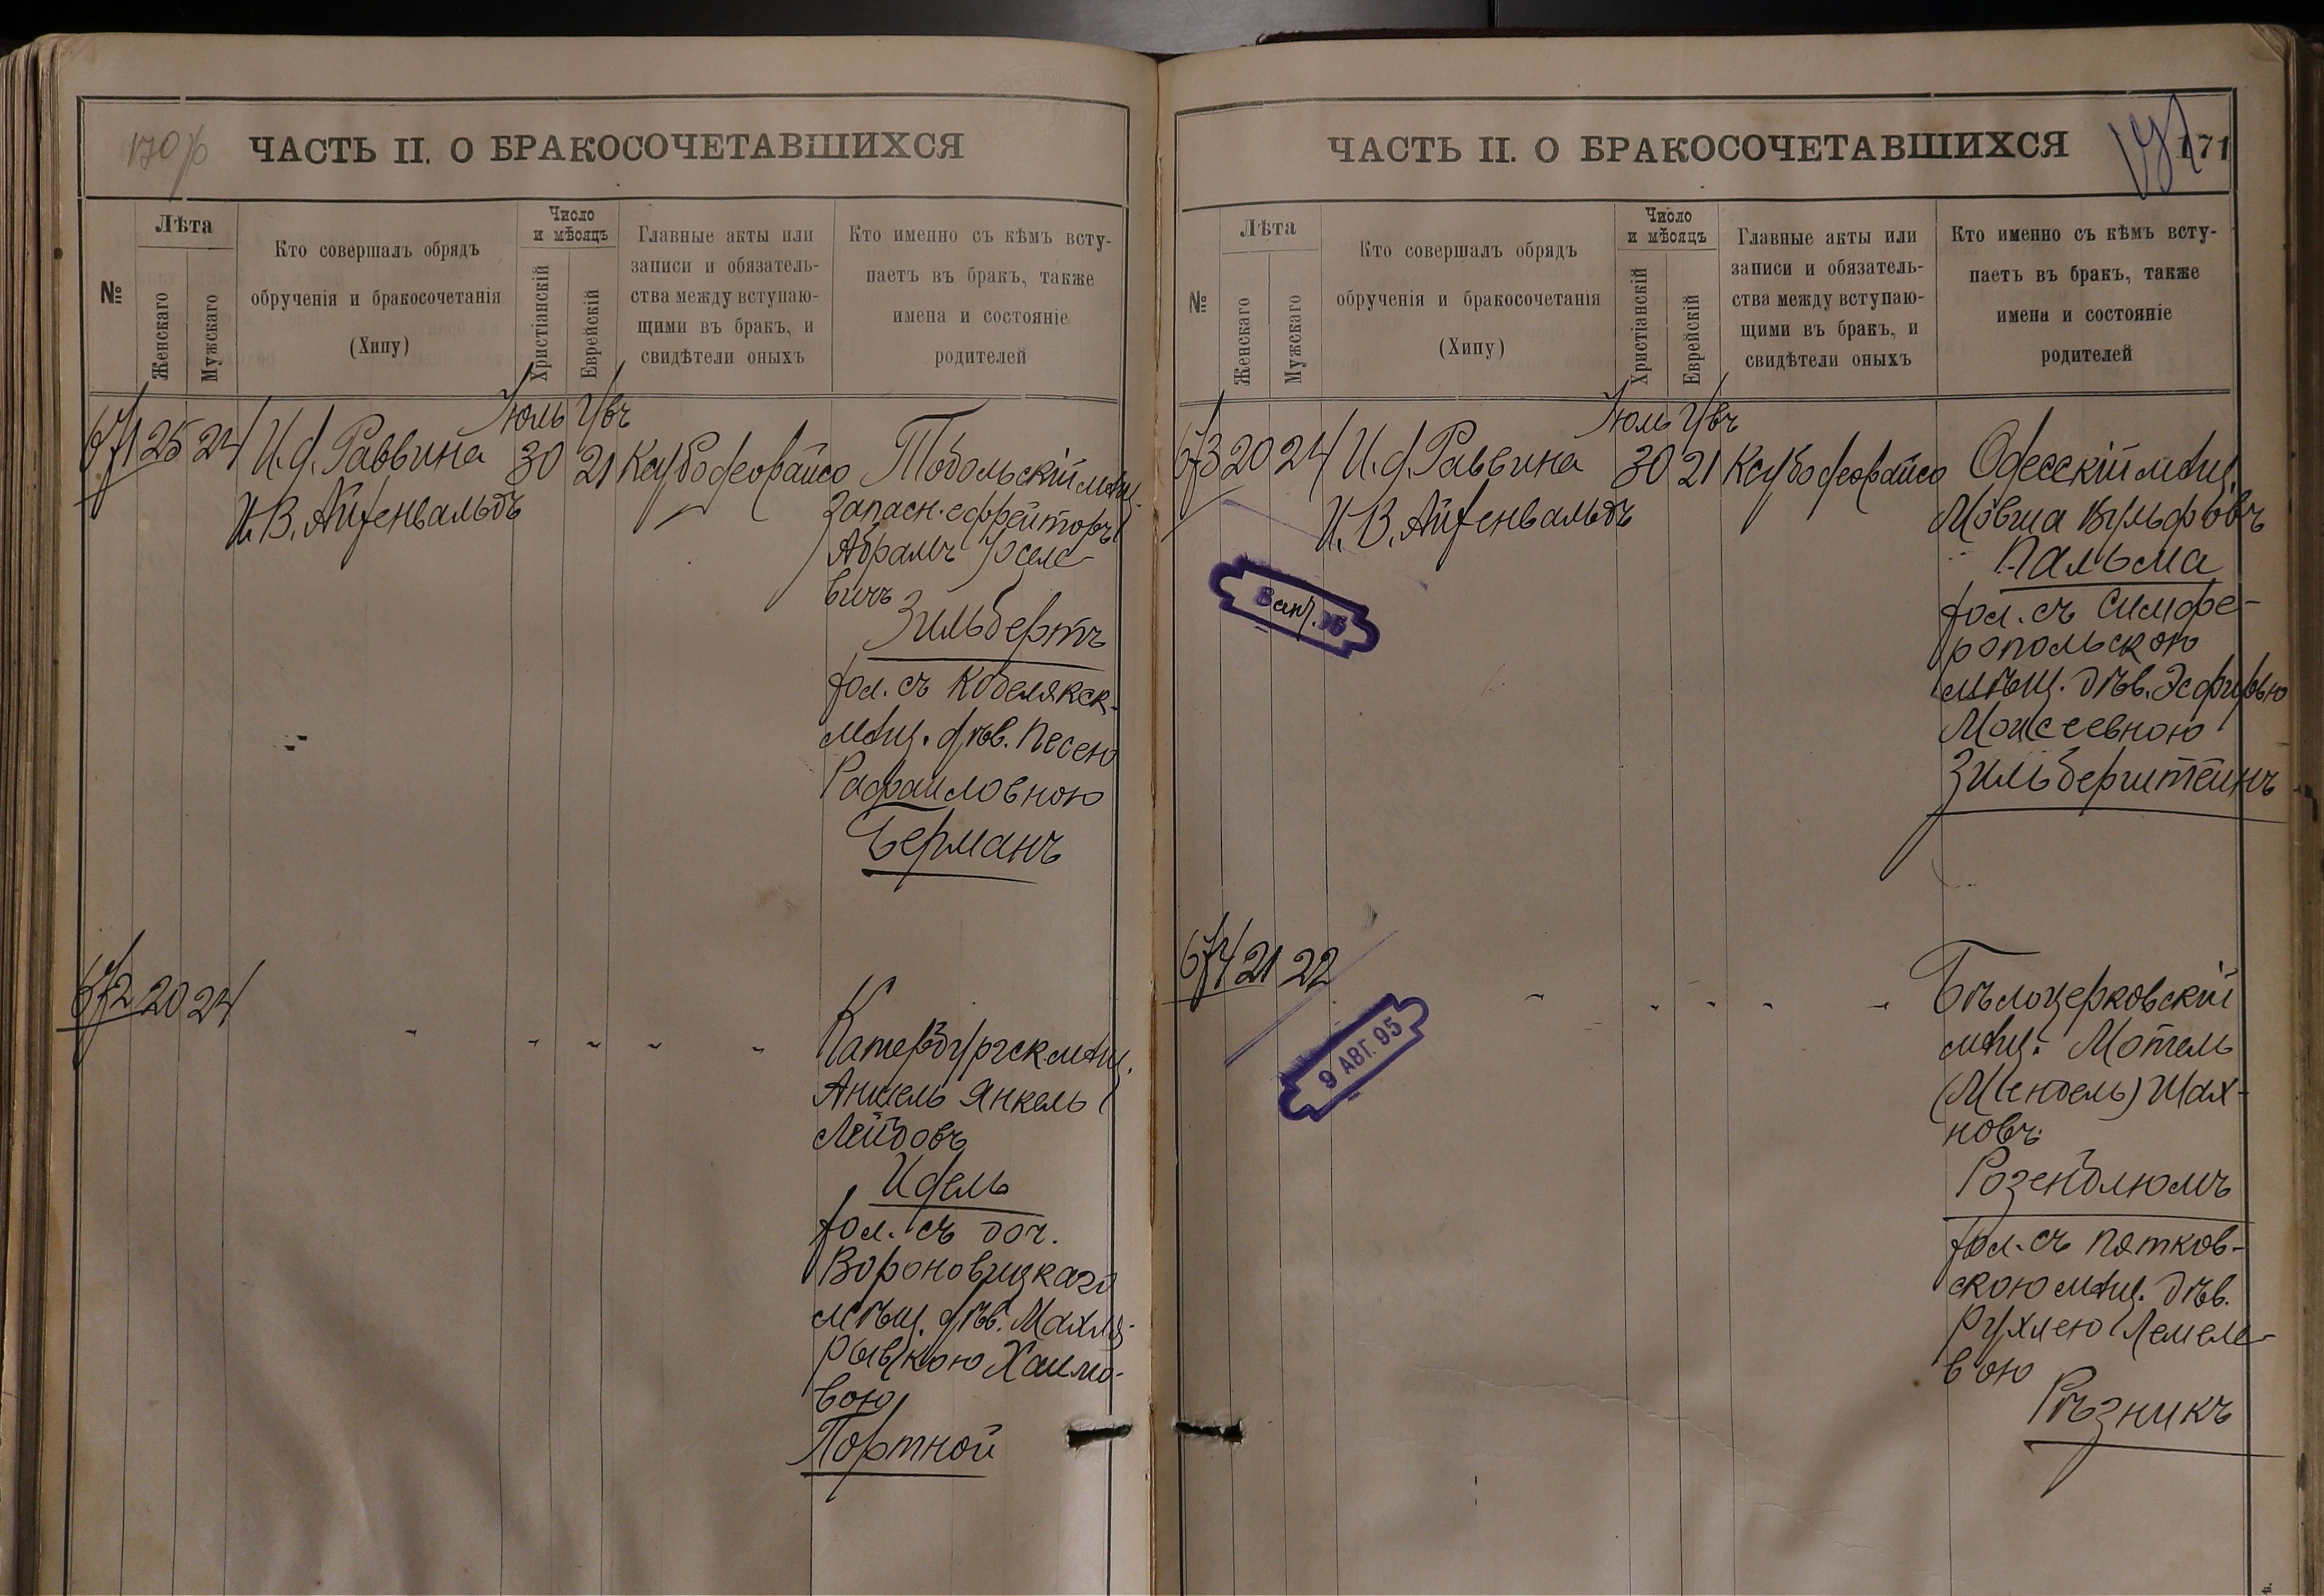 170 об
ЧАСТЬ II. О БРАКОСОЧЕТАВШИХСЯ
№
Лѣта
Женскаго
Мужскаго
Кто совершалъ обрядъ
обрученія и бракосочетанія
(Хипу)
Число
и мѣсяцъ
Христіанскій
Еврейскій
Главные акты или
записи и обязатель-
ства между вступаю-
щими въ бракъ, и
свидѣтели оныхъ
Кто именно съ кѣмъ всту-
паетъ въ бракъ, также
имена и состояніе
родителей
Іюль
671 25 24 И.д. Раввина 30 21 Тобольскій мѣщ.
И. В. Айзенвальдъ
запасн. ефрейторъ
Абрамъ Іоселе-
вичъ
Зильбертъ
хол. съ Кобелякск.
мѣщ. дѣв. Песею
Рафаиловною
Берманъ
672 20 24
Аншель Янкель
Лейбовъ
Идель
хол. съ доч.
Вороновицкаго
мѣщ. дѣв. Махлѣ-
Рывкою Хаимо-
вою
Портной
ЧАСТЬ II. О БРАКОСОЧЕТАВШИХСЯ
171
№
Лѣта
Женскаго
Мужскаго
Кто совершалъ обрядъ
обрученія и бракосочетанія
(Хипу)
Число
и мѣсяцъ
Христіанскій
Еврейскій
Главные акты или
записи и обязатель-
ства между вступаю-
щими въ бракъ, и
свидѣтели оныхъ
Кто именно съ кѣмъ всту-
паетъ въ бракъ, также
имена и состояніе
родителей
Іюль
673 20 24 И.д. Раввина 30 21 Одесскій мѣщ.
И. В. Айзенвальдъ
Мовша Вульфовъ
Пальма
хол. съ Симфе-
ропольскою
мѣщ. дѣв. Эсфирью
Моисеевною
Зильберштейнъ
674 21 22
9 АВГ. 95
Бѣлоцерковскій
мѣщ. Мотель
(Мендель) Шах-
новъ
Розенблюмъ
хол. съ Пятков-
скою мѣщ. дѣв.
Рухлею Лемеле-
вою
Рѣзникъ